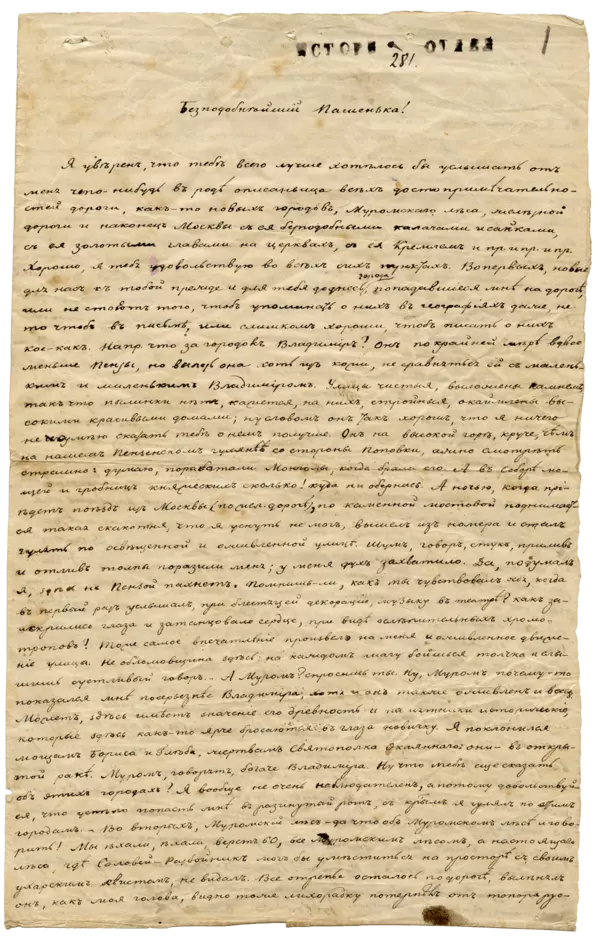 ИСТОРИ ОТДЕЛ
281.
1
Безподобнѣйшій Пашенька!
Я увѣренъ, что тебѣ всего лучше хотѣлось бы услышать отъ
меня чего-нибудь въ родѣ описаньица всѣхъ достопримѣчательно-
стей дороги, какъ-то новыхъ городовъ, Муромскаго лѣса, желѣзной
дороги и наконецъ Москвы съ ея безподобными калачами и сайками,
съ ея золотыми главами на церквахъ, съ ея Кремлемъ и пр. и пр. и пр.
Хорошо, я тебѣ удовольствую во всѣхъ сихъ пунктахъ. Вопервыхъ, новые
города
для насъ съ тобой прежде и для тебя доднесь, попадавшіеся мнѣ на дорогѣ,
или не стоютъ того, чтобъ упоминать о нихъ въ географіяхъ даже, не
то чтобъ въ письмѣ, или слишкомъ хороши, чтобъ писать о нихъ
кое-какъ. Напр. что за городокъ Владиміръ? Онъ по крайней мѣрѣ вдвое
меньше Пензы, но вылѣзь она хоть изъ кожи, не сравняться ей съ малень-
кимъ и миленькимъ Владиміромъ. Улицы чистыя, выложены камнемъ,
такъ что пылинки нѣтъ, кажется, на нихъ, стройныя, окаймлены вы-
сокими красивыми домами; словомъ онъ такъ хорошъ, что я ничего
не умѣю сказать тебѣ о немъ получше. Онъ на высокой горѣ, круче, чѣмъ
на нашемъ Пензенскомъ гулянѣ со стороны Поповки, ажно смотрѣть
страшно: думаю, поработали Монголы, когда брали его. А въ Соборѣ мо-
щей и гробницъ княжескихъ сколько! куда ни обернись. А ночью, когда прі-
ѣдетъ поѣздъ изъ Москвы (по жел. дорогѣ), по каменной мостовой поднимает-
ся такая скакотня, что я уснуть не могъ, вышелъ изъ номера и сталъ
гулять по освѣщенной и оживленной улицѣ. Шумъ, говоръ, стукъ, приливъ
и отливъ толпы поразили меня; у меня духъ захватило. Да, подумалъ
я, здѣсь не Пензой пахнетъ. Помнишь-ли, какъ ты чувствовалъ себя, когда
въ первый разъ услышалъ, при блестящей декораціи, музыку въ театрѣ? какъ за-
искрились глаза и затанцовало сердце, при видѣ ослѣпительныхъ хромо-
троповъ? Тоже самое впечатлѣніе произвело на меня и оживленное движе-
ніе улицы. Не обломовщина здѣсь: на каждомъ шагу бойкая толпа и слы-
шишь суетливый говоръ. - А Муромъ? спросишь ты. Ну, Муромъ почему-то
показался мнѣ посерьезнѣе Владиміра, хоть и онъ также оживленъ и
Можетъ, здѣсь имѣютъ значеніе его древность и памятники историческіе,
которые здѣсь какъ-то ярче бросаются въ глаза новичку. Я поклонился
мощамъ Бориса и Глѣба, жертвамъ Святополка Окаяннаго: они въ откры-
той ракѣ. Муромъ, говорятъ, богаче Владиміра. Ну что тебѣ еще сказать
объ этихъ городахъ? Я вообще не очень наблюдателенъ, а потому довольствуй-
ся, что успѣло попасть мнѣ въ разинутый ротъ, съ краимъ я гулялъ по этимъ
городамъ. - Во вторыхъ, Муромскій лѣсъ - да что объ Муромскомъ лѣсѣ и гово-
рить! Мы ѣхали, ѣхали, верстъ 60, все Муромскимъ лѣсомъ, а настоящаго
лѣса, гдѣ Соловей-Разбойникъ могъ бы умѣститься на просторѣ съ своимъ
ухарскимъ свистомъ, не видалъ. Все отрепье осталось по дорогѣ,
онъ, какъ моя голова, видно тоже лихорадку потерпѣвъ отъ топора рус-